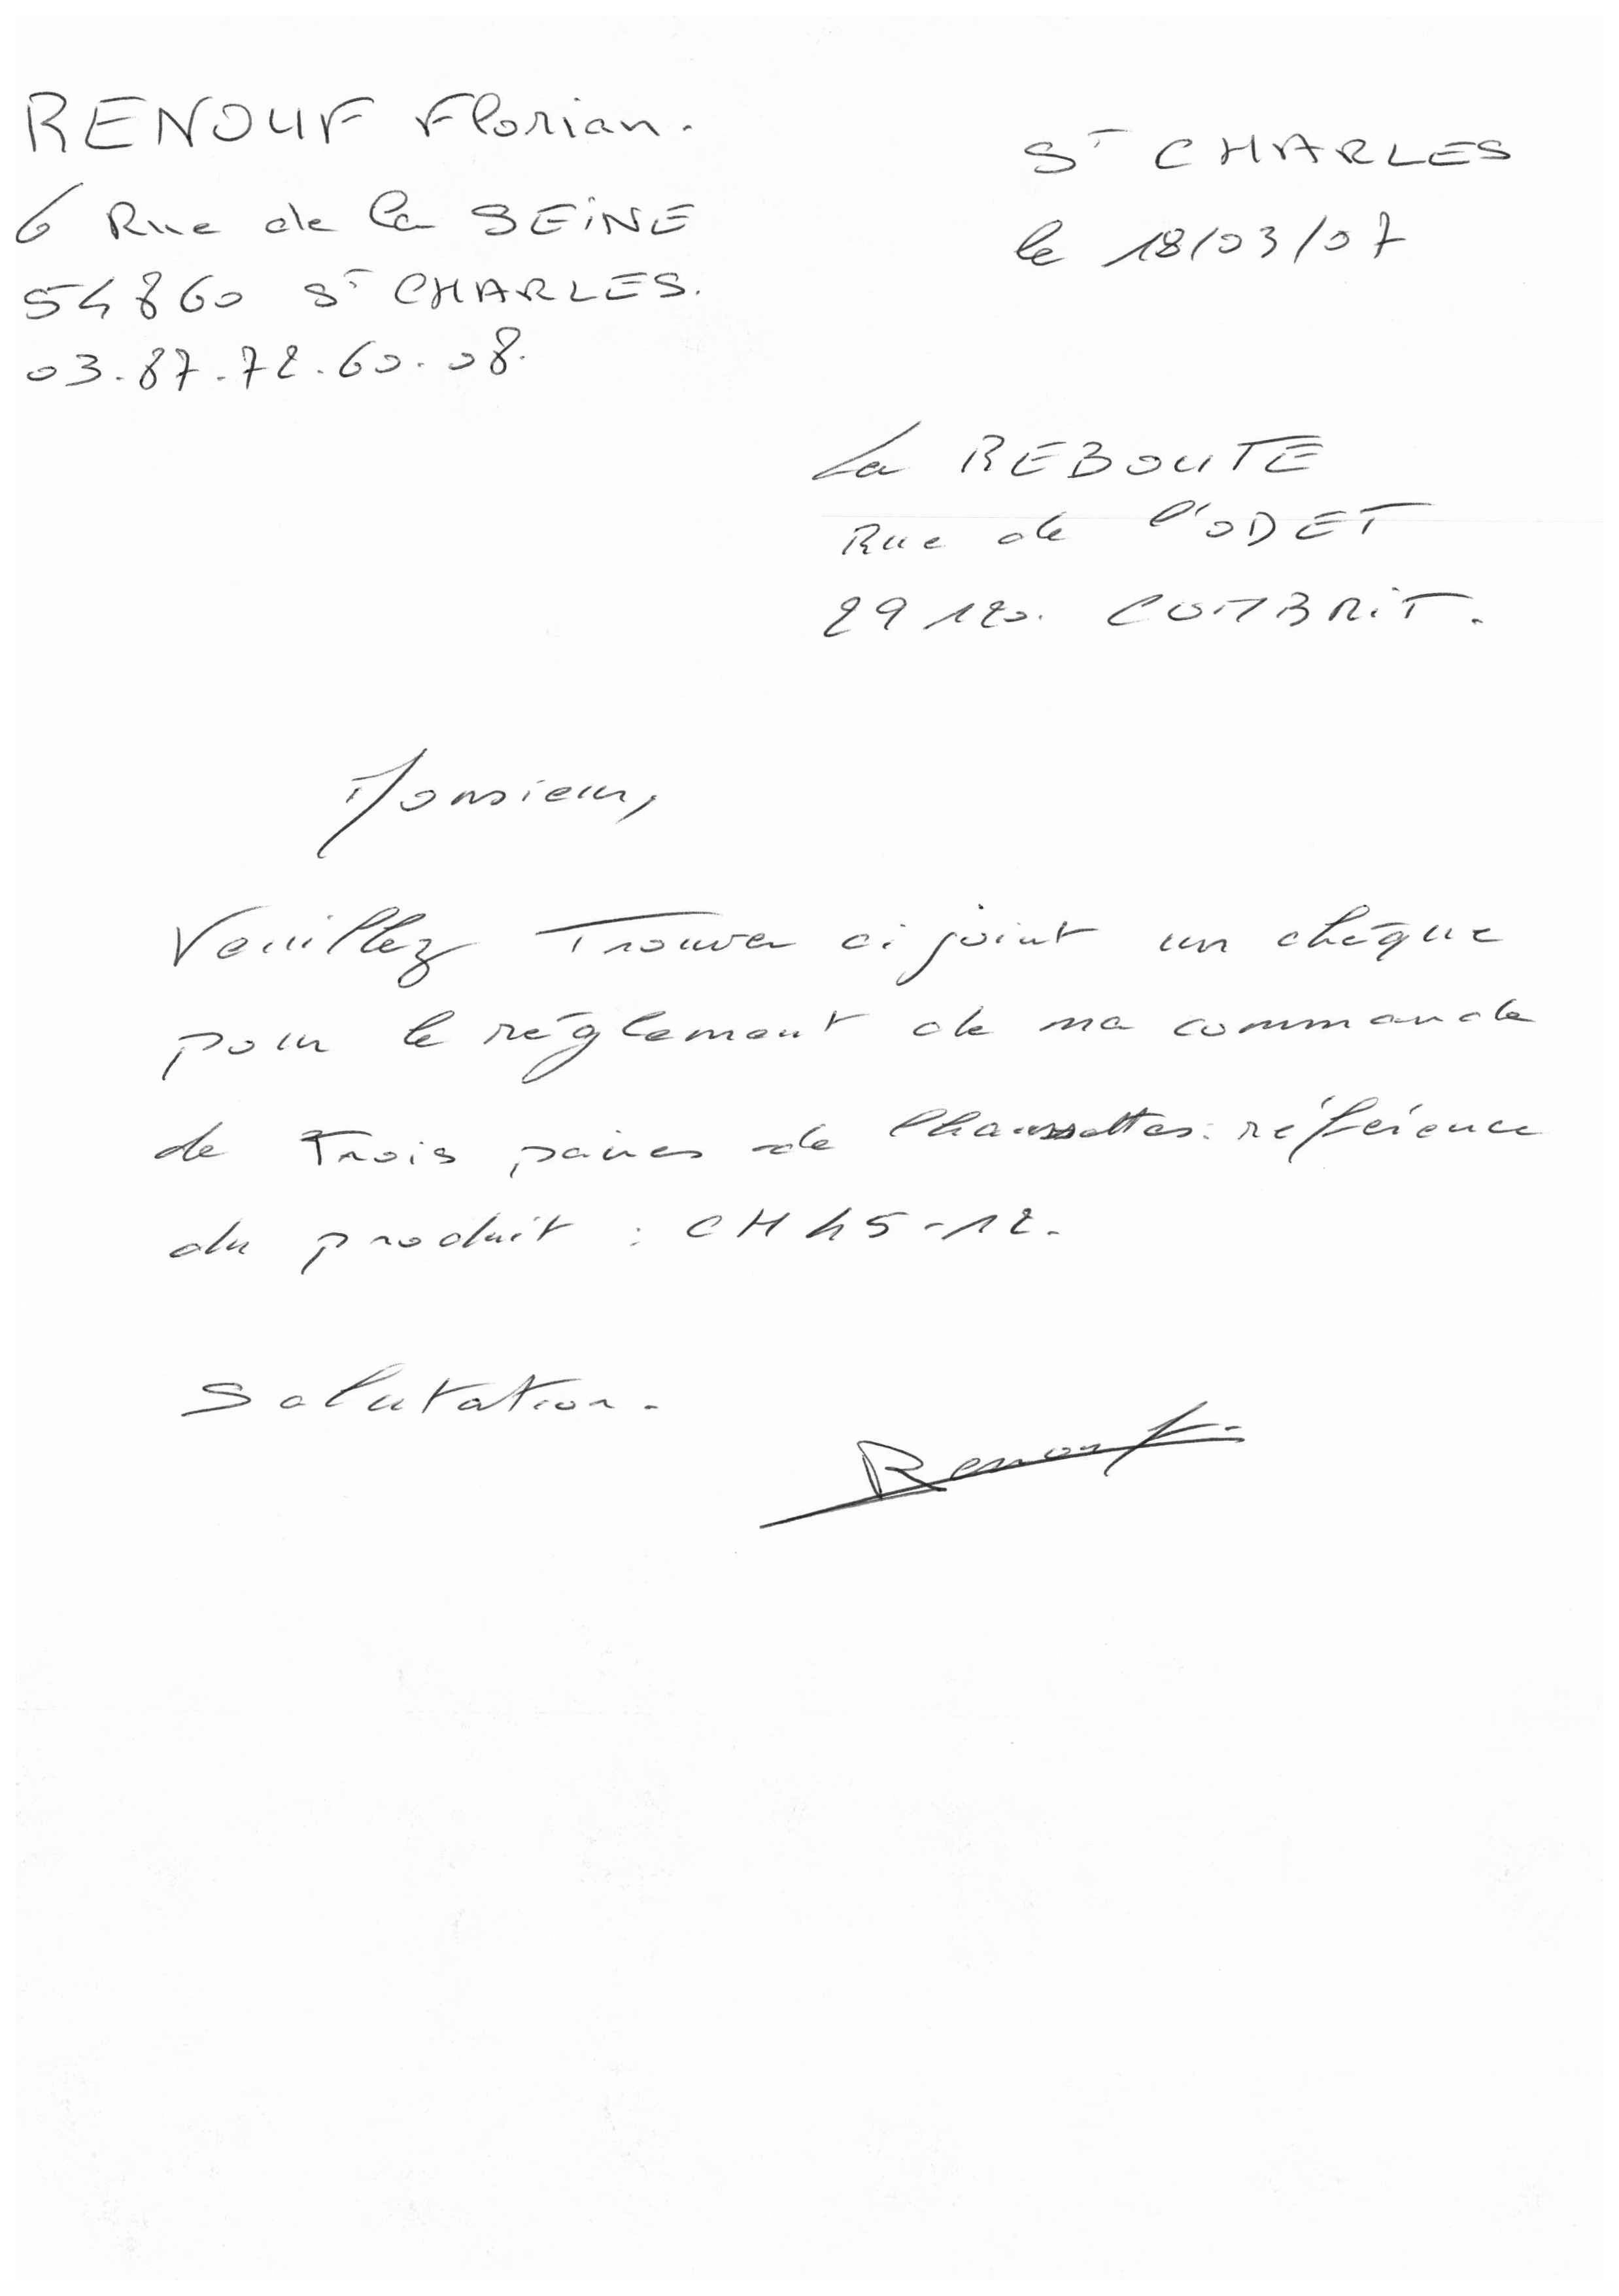 RENOUF Florian.
6 Rue de la SEINE
54860 St CHARLES.
03.87.72.60.08.
St CHARLES
le 18/03/07
La REBOUTE
Rue de l'ODET
29120. COMBRIT.
Monsieur,
Veuillez Trouver ci joint un chèque
pour le réglement de ma commande
de Trois paires de Chaussettes. référence
du produit : CH45-12.
Salutation.
Renouf.